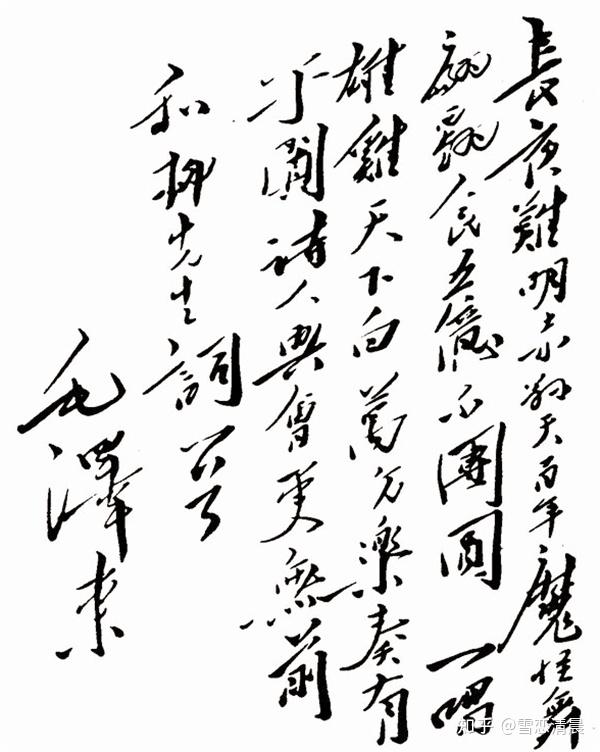 長夜難明赤縣天百年魔怪舞
翩躚人民五億不團圓 一唱
雄雞天下白萬方樂奏有
于闐詩人興會更無前
和柳先生詞
毛澤東
知乎 @雪恋清晨